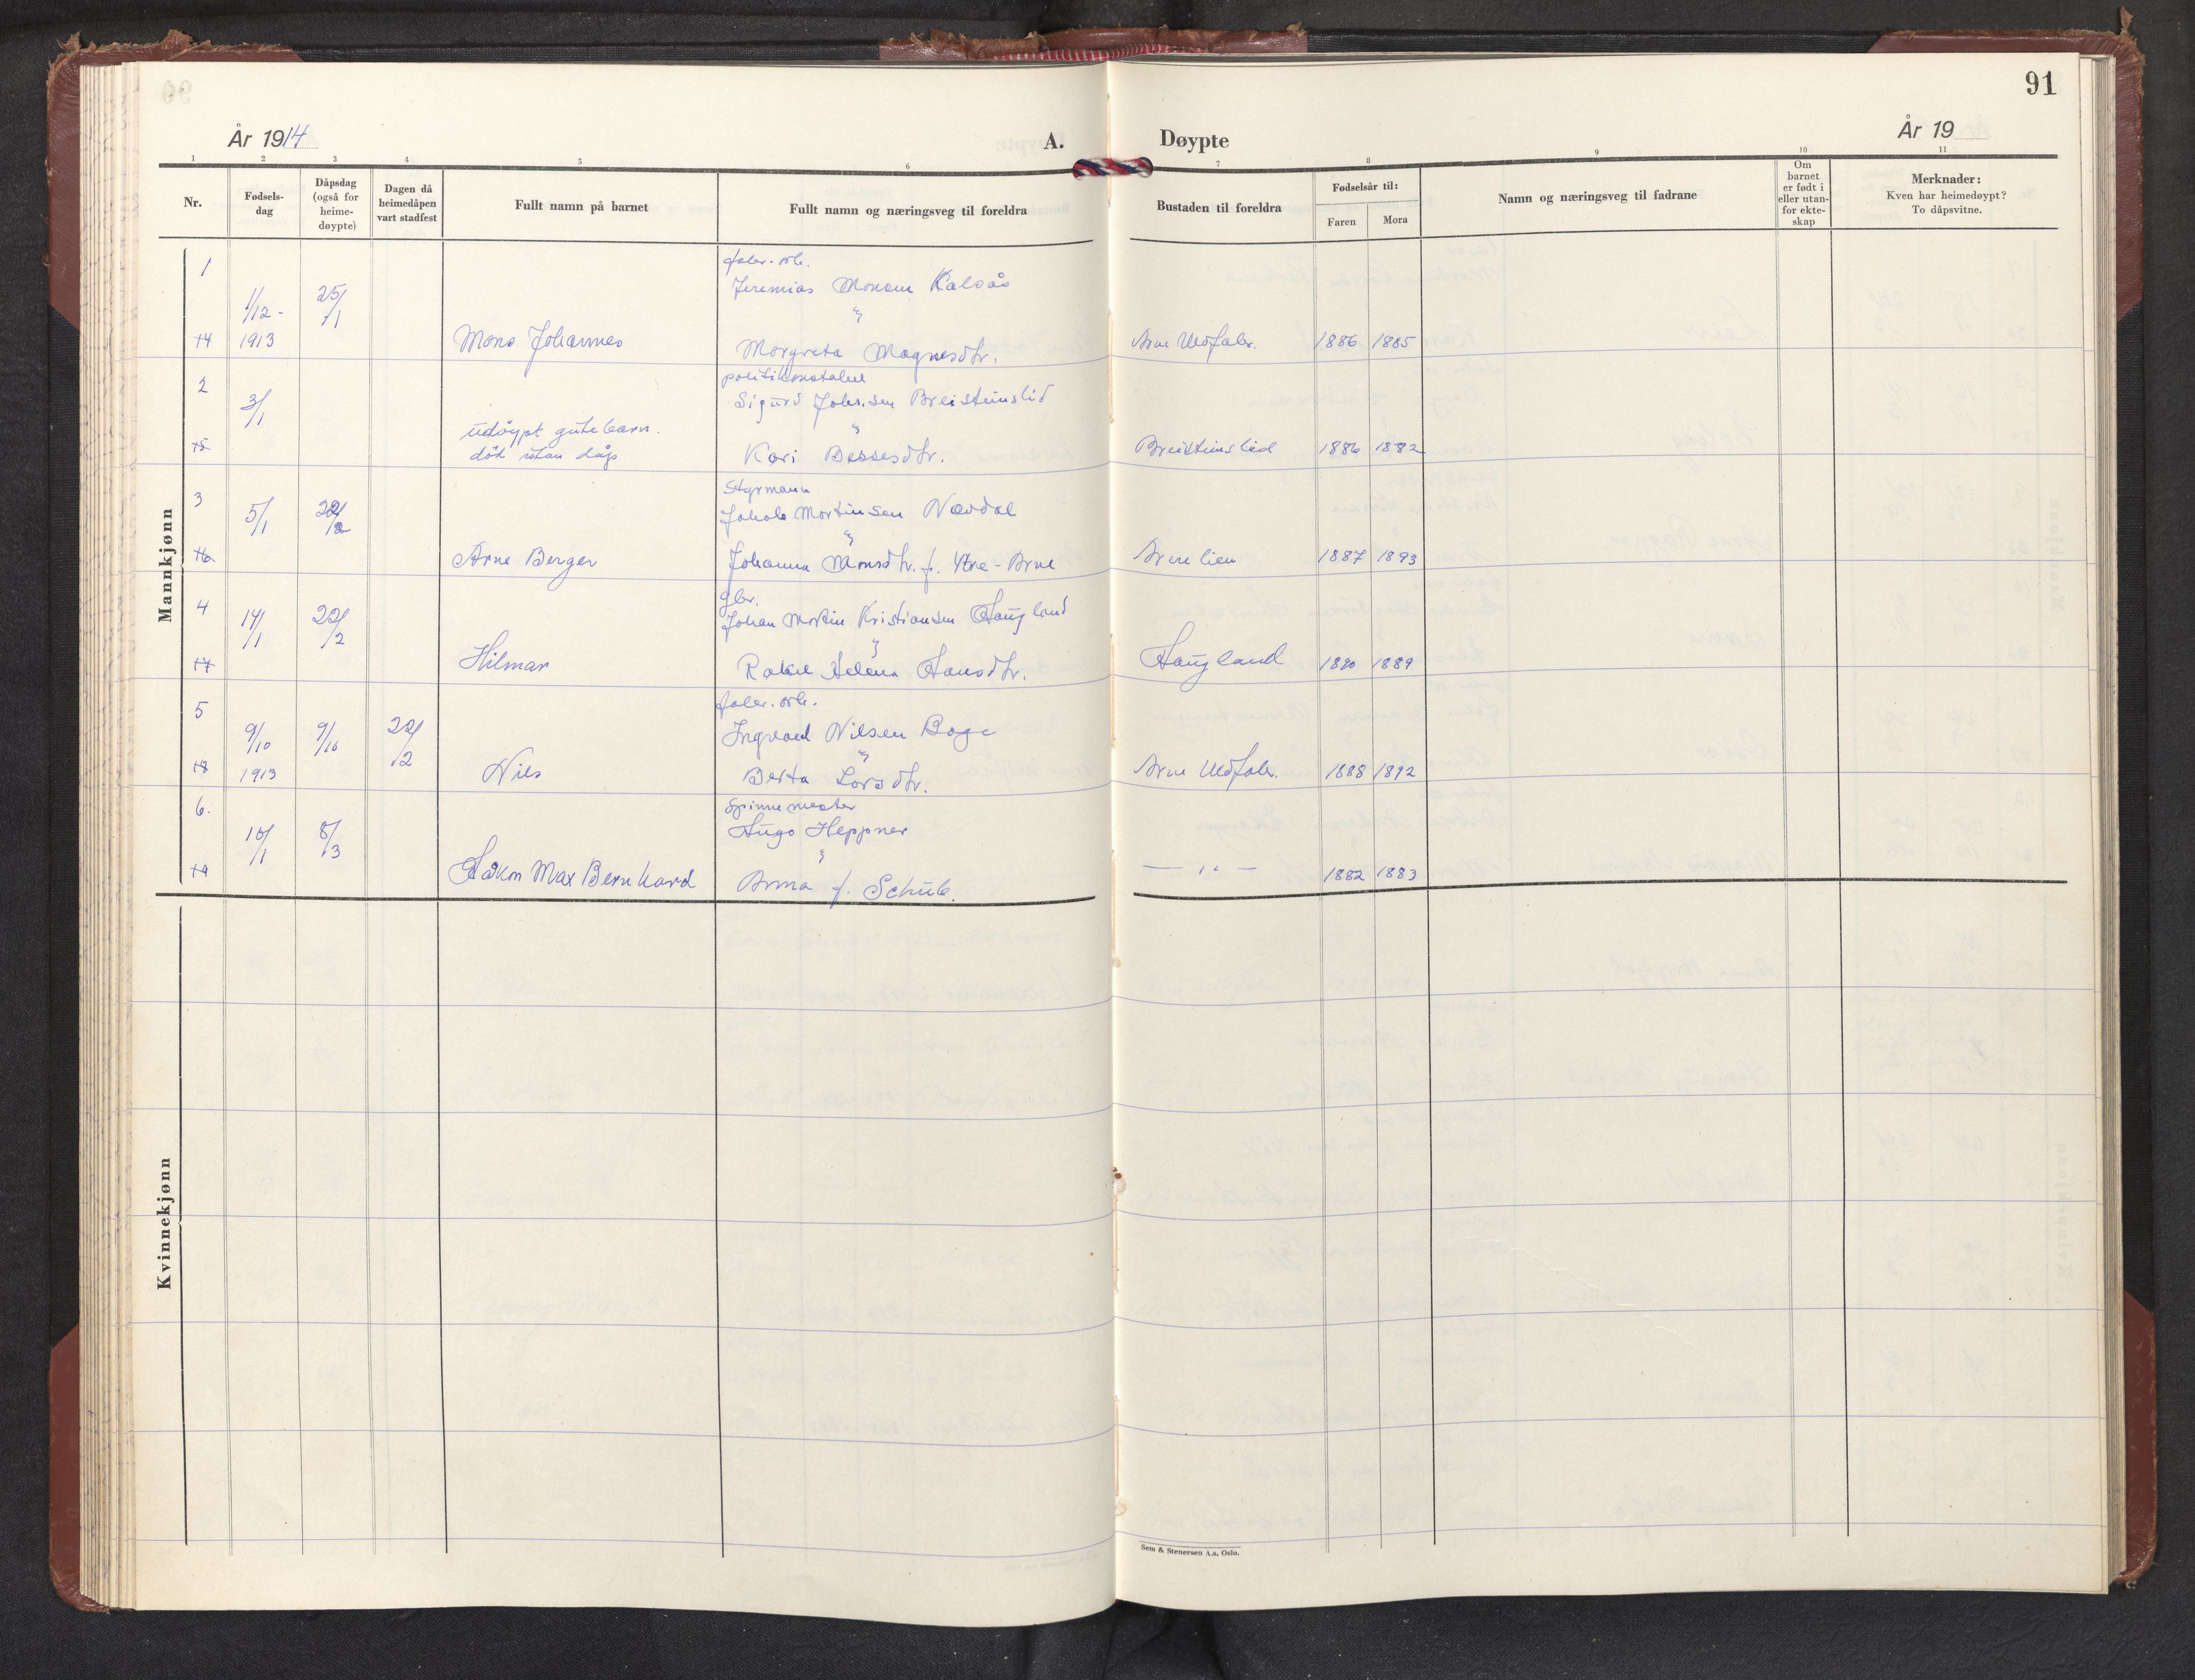 91
År 1914
A.
Døypte
År 19
1 2 3 4 5 6 7 8 9 10 11
Nr.
Fødsels-
dag
Dåpsdag
(også for
heime-
døypte)
Dagen då
heimedåpen
vart stadfest
Fullt namn på barnet
Fullt namn og næringsveg til foreldra
Bustaden til foreldra
Fødselsår til:
Faren Mora
Namn og næringsveg til fadrane
Om
barnet
er født i
eller utan-
for ekte-
skap
Merknader:
Kven har heimedøypt?
To dåpsvitne.
Mannkjønn
1
fabr. arb.
Jeremias Monsen Kalsås
1/12 - 25/1
"
14 1913 Mons Johannes Margreta Magnesdtr. Arne Uldfabr. 1886 1885
2
politikonstabel
Sigurd Johs.sen Breisteinslid
3/1
udöypt gutebarn. "
15 död utan dåp Kari Bessesdtr. Breisteinslid 1886 1882
3
Styrmann
Jakob Mortinsen Navdal
5/1 22/2
"
16 Arne Berger Johanna Monsdtr. f. Ytre-Arne Arnelien 1887 1893
4
gbr.
Johan Martin Kristiansen Haugland
14/1 22/2
"
17 Hilmar Rakel Helena Hansdtr. Haugland 1890 1889
5
fabr. arb.
Ingvald Nilsen Boge
9/10 9/10 22/2
"
18 1913 Nils Berta Larsdtr. Arne Uldfabr. 1888 1892
6.
Spinnemester
Hugo Heppner
10/1 8/3
"
19 Håkon Max Bernhard Anna f. Schub. — " — 1882 1883
Kvinnekjønn
Sem & Stenersen A.s, Oslo.